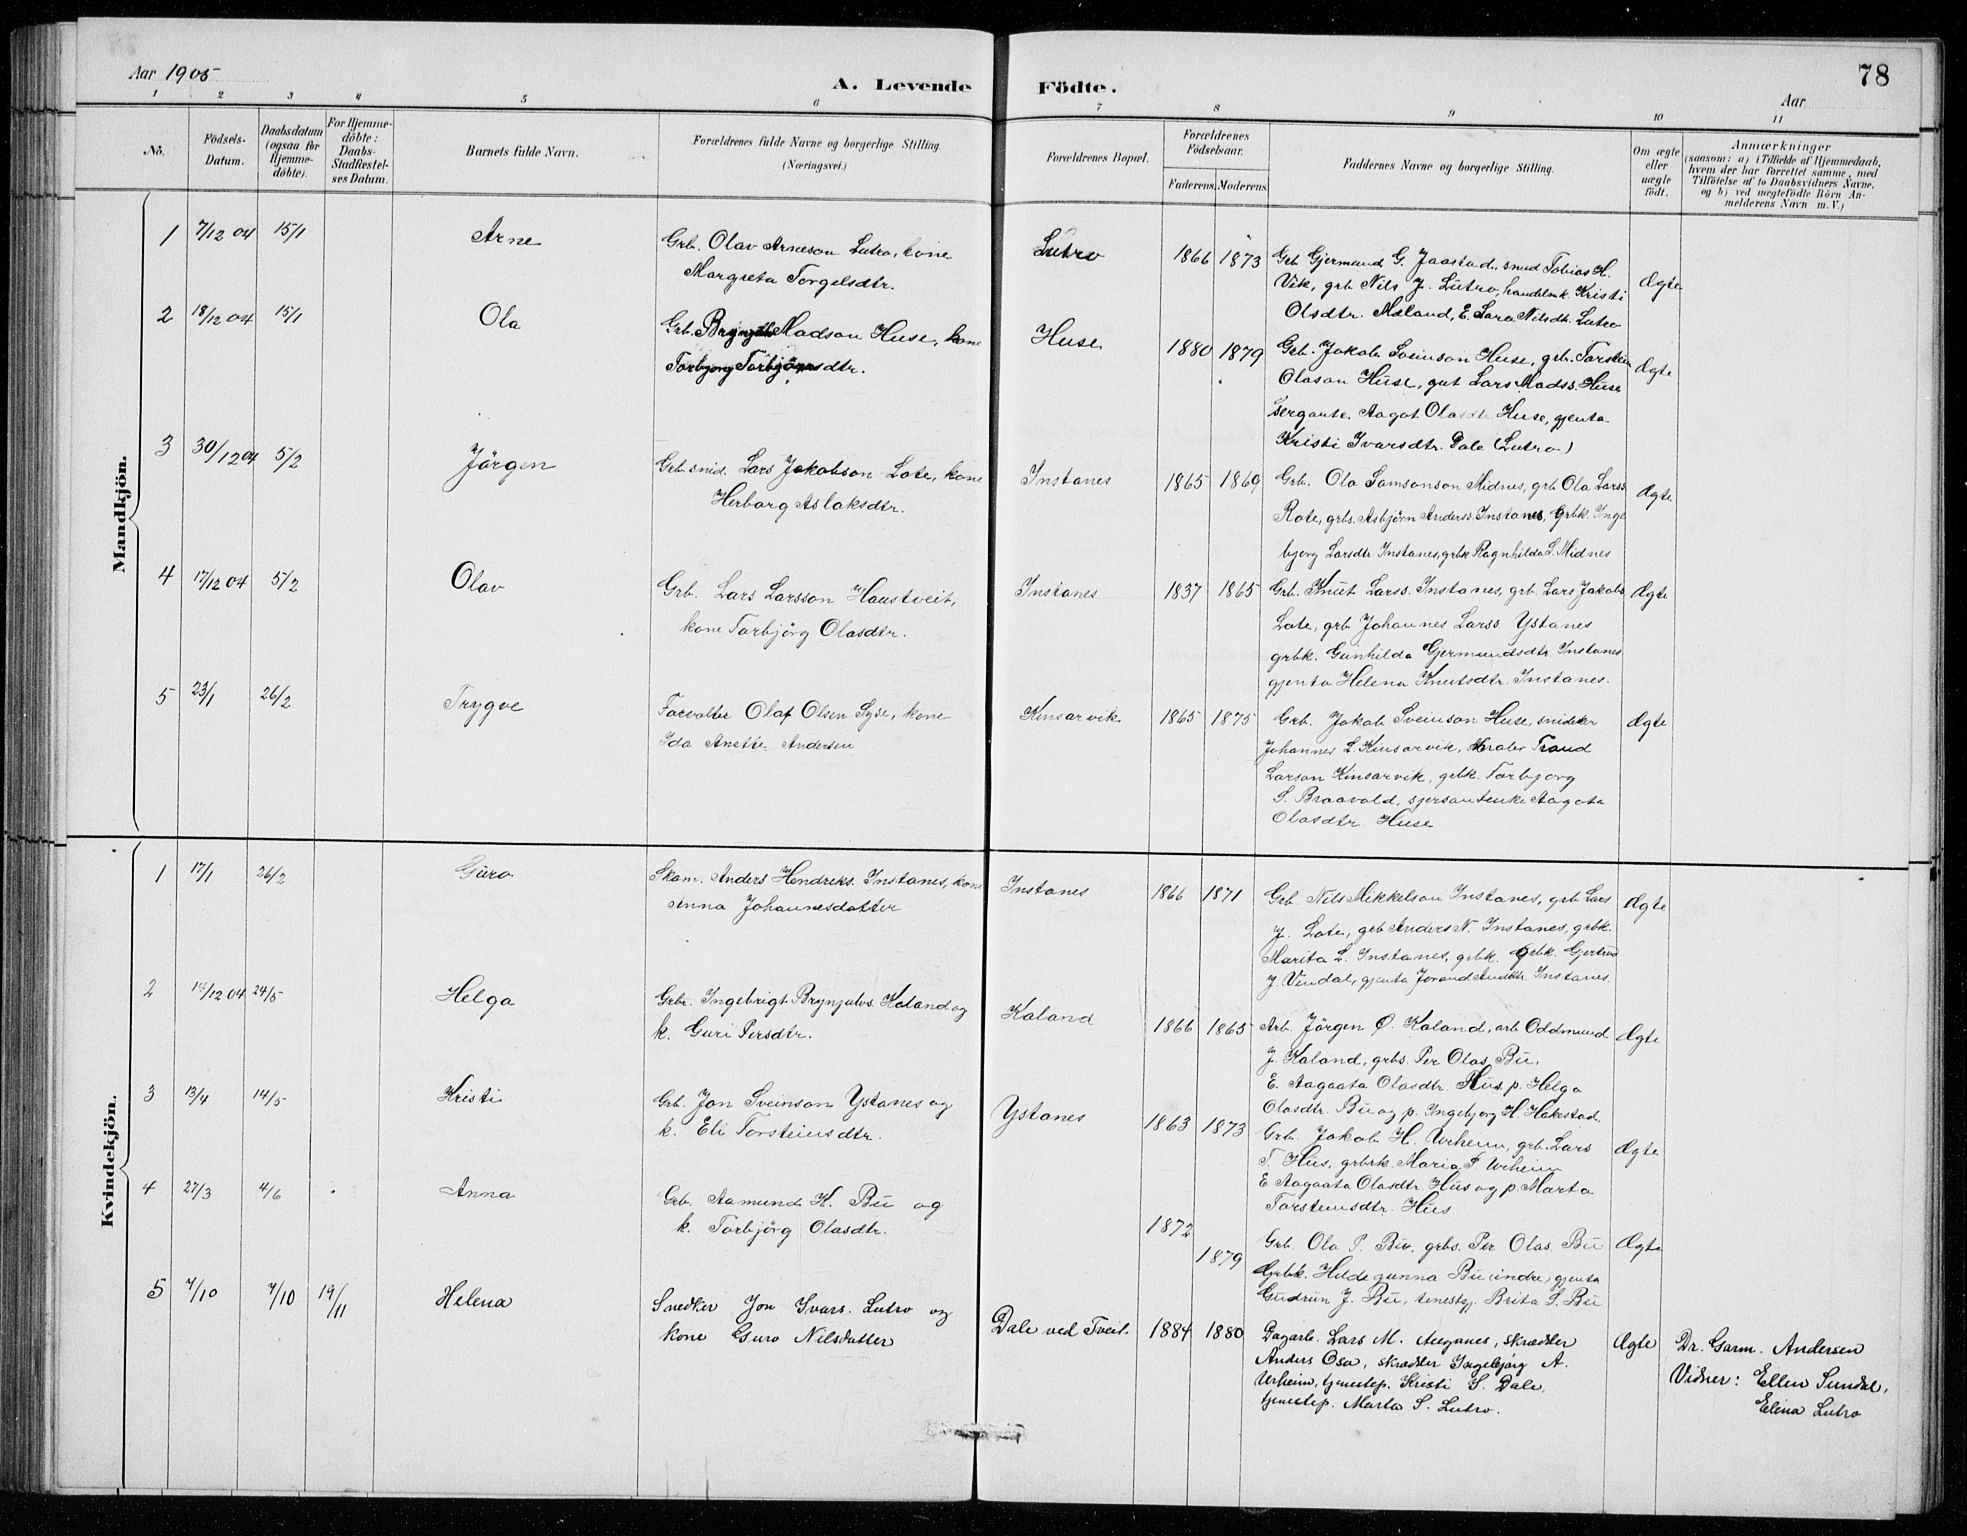 Aar 1905
A. Levende Födte.
78
Aar
1 2 3 4 5 6 7 8 9 10 11
No.
Födsels-Datum.
Daabsdatum (ogsaa for Hjemme-döbte).
For Hjemme-döbte: Daabs-Stadfæstel-ses Datum.
Barnets fulde Navn.
Forældrenes fulde Navne og borgerlige Stilling.
(Næringsvei.)
Forældrenes Bopæl.
Forældrenes Födselsaar.
Faderens. Moderens.
Faddernes Navne og borgerlige Stilling.
Om ægte eller uægte födt.
Anmærkninger
(saasom: a) i Tilfælde af Hjemmedaab,
hvem der har forrettet samme, med
Tilföielse af to Daabsvidners Navne.
og b) ved uægtefödte Börn An-
melderens Navn m. V.)
Mandkjön.
1 7/12 04 15/1 Arne
Grb. Olav Arneson Lutro, kone
Margreta Torgelsdtr.
Lutro 1866 1873
Grb Gjermund G. Jaastad, smed Tobias H.
Vik, grb Nils J. Lutro, handelsmk. Kristi
Olsdtr. Mæland, E. Sara Nilsdt. Lutro
Ægte
2 18/12 04 15/1 Ola
Grb. Madson Huse, kone
Torbjorg Torbjörnsdtr.
Huse 1880 1879
Grb. Jakob Sveinson Huse, grb. Torstein
Olason Huse, gut Lars Madss. Huse
sergante. Aagot Olasdt. Huse, gjenta
Kristi Ivarsdtr. Dale (Lutro)
Ægte
3 30/12 04 5/2 Jörgen
Grb snid. Lars Jakobson Lote, kone
Herborg Aslaksdtr.
Instanes 1865 1869
Grb. Ola Samsonson Midnes, grb Ola Larss.
Rote, grbs. Asbjörn Anderss. Instanes, Grbk. Inge
bjorg Larsdtr Instanes, grbk Ragnhilda S. Midnes
Ægte
4 17/12 04 5/2 Olav
Grb. Lars Larsson Haustveit,
kone Torbjörg Olasdtr.
Instanes 1837 1865
Grb. Knut Larss. Instanes, grb. Lars Jakobs
Lote, grb Johannes Larss. Ystanes
grbk. Gunhilda Gjermundsdtr. Instanes
gjenta Helena Knutsdtr. Instanes.
Ægte
5 23/1 26/2 Trygve
Forvalter Olaf Olsen Syse, kone
Ida Anette Andersen
Kinsarvik 1865 1875
Grb. Jakob Sveinson Huse, snideker
Johannes L. Kinsarvik, Maaler Traud
Larson Kinsarvik, grbk. Torbjorg
S. Braavold, sjersantenke Aagota
Olasdtr. Huse
Ægte
Kvindekjön.
1 17/1 26/2 Guro
Skom. Anders Hendreks. Instanes, kone
Anna Johannesdatter
Instanes 1866 1871
Grb. Nils Mikkelson Instanes, grb Lars
J. Lote, grb Anders N. Instanes, grbk.
Marita L. Instanes, grbk. Grbk. Gjertrud
J. Vendal, gjenta Jorand Andsdtr. Instanes.
Ægte
2 14/12 04 24/5 Helga
Grbr. Ingebrigt Brynjulvs. Kaland og
k. Guri Persdtr.
Kaland 1866 1865
Arb. Jörgen Ö. Kaland, arb Oddmund
J. Kaland, grbs. Per Olas. Bu.
E. Aagaata Olasdtr. Hus p. Helga
Olasdtr. Bu og p. Ingebjorg H. Hakestad.
Ægte
3 13/4 14/5 Kristi
Grb. Jon Sveinson Ystanes og
k. Eli Torsteinsdtr.
Ystanes 1863 1873
Grb. Jakob H. Urheim, grb. Lars
T. Hus, grbrk. Maria P Urheim
E. Aagaata Olasdtr. Hus og p. Marta
Torsteinsdtr. Hus
Ægte
4 27/3 4/6 Anna
Grb. Aamund H. Bu og
k. Torbjörg Olasdtr.
1872 1879
Grb. Ola P. Bu, grbs. Per Olas. Bu
Grbk. Hildegunna Bu (indre) gjenta
Gudrun J. Bu, tenestgj. Brita S. Bu
Ægte
5 7/10 7/10 19/11 Helena
Snedker Jon Ivars. Lutro og
kone Guro Nilsdatter
Dale ved Tveit. 1884 1880
Dagarb. Lars M. Aeganes, skrædder
Anders Osa, skrædder Ingebjörg A.
Urheim, tjenestep. Kristi S. Dale,
tjenestep. Marta S. Lutro.
Ægte
Dr. Garm. Andersen
Vidner: Ellen Sundal,
Elina Lutro